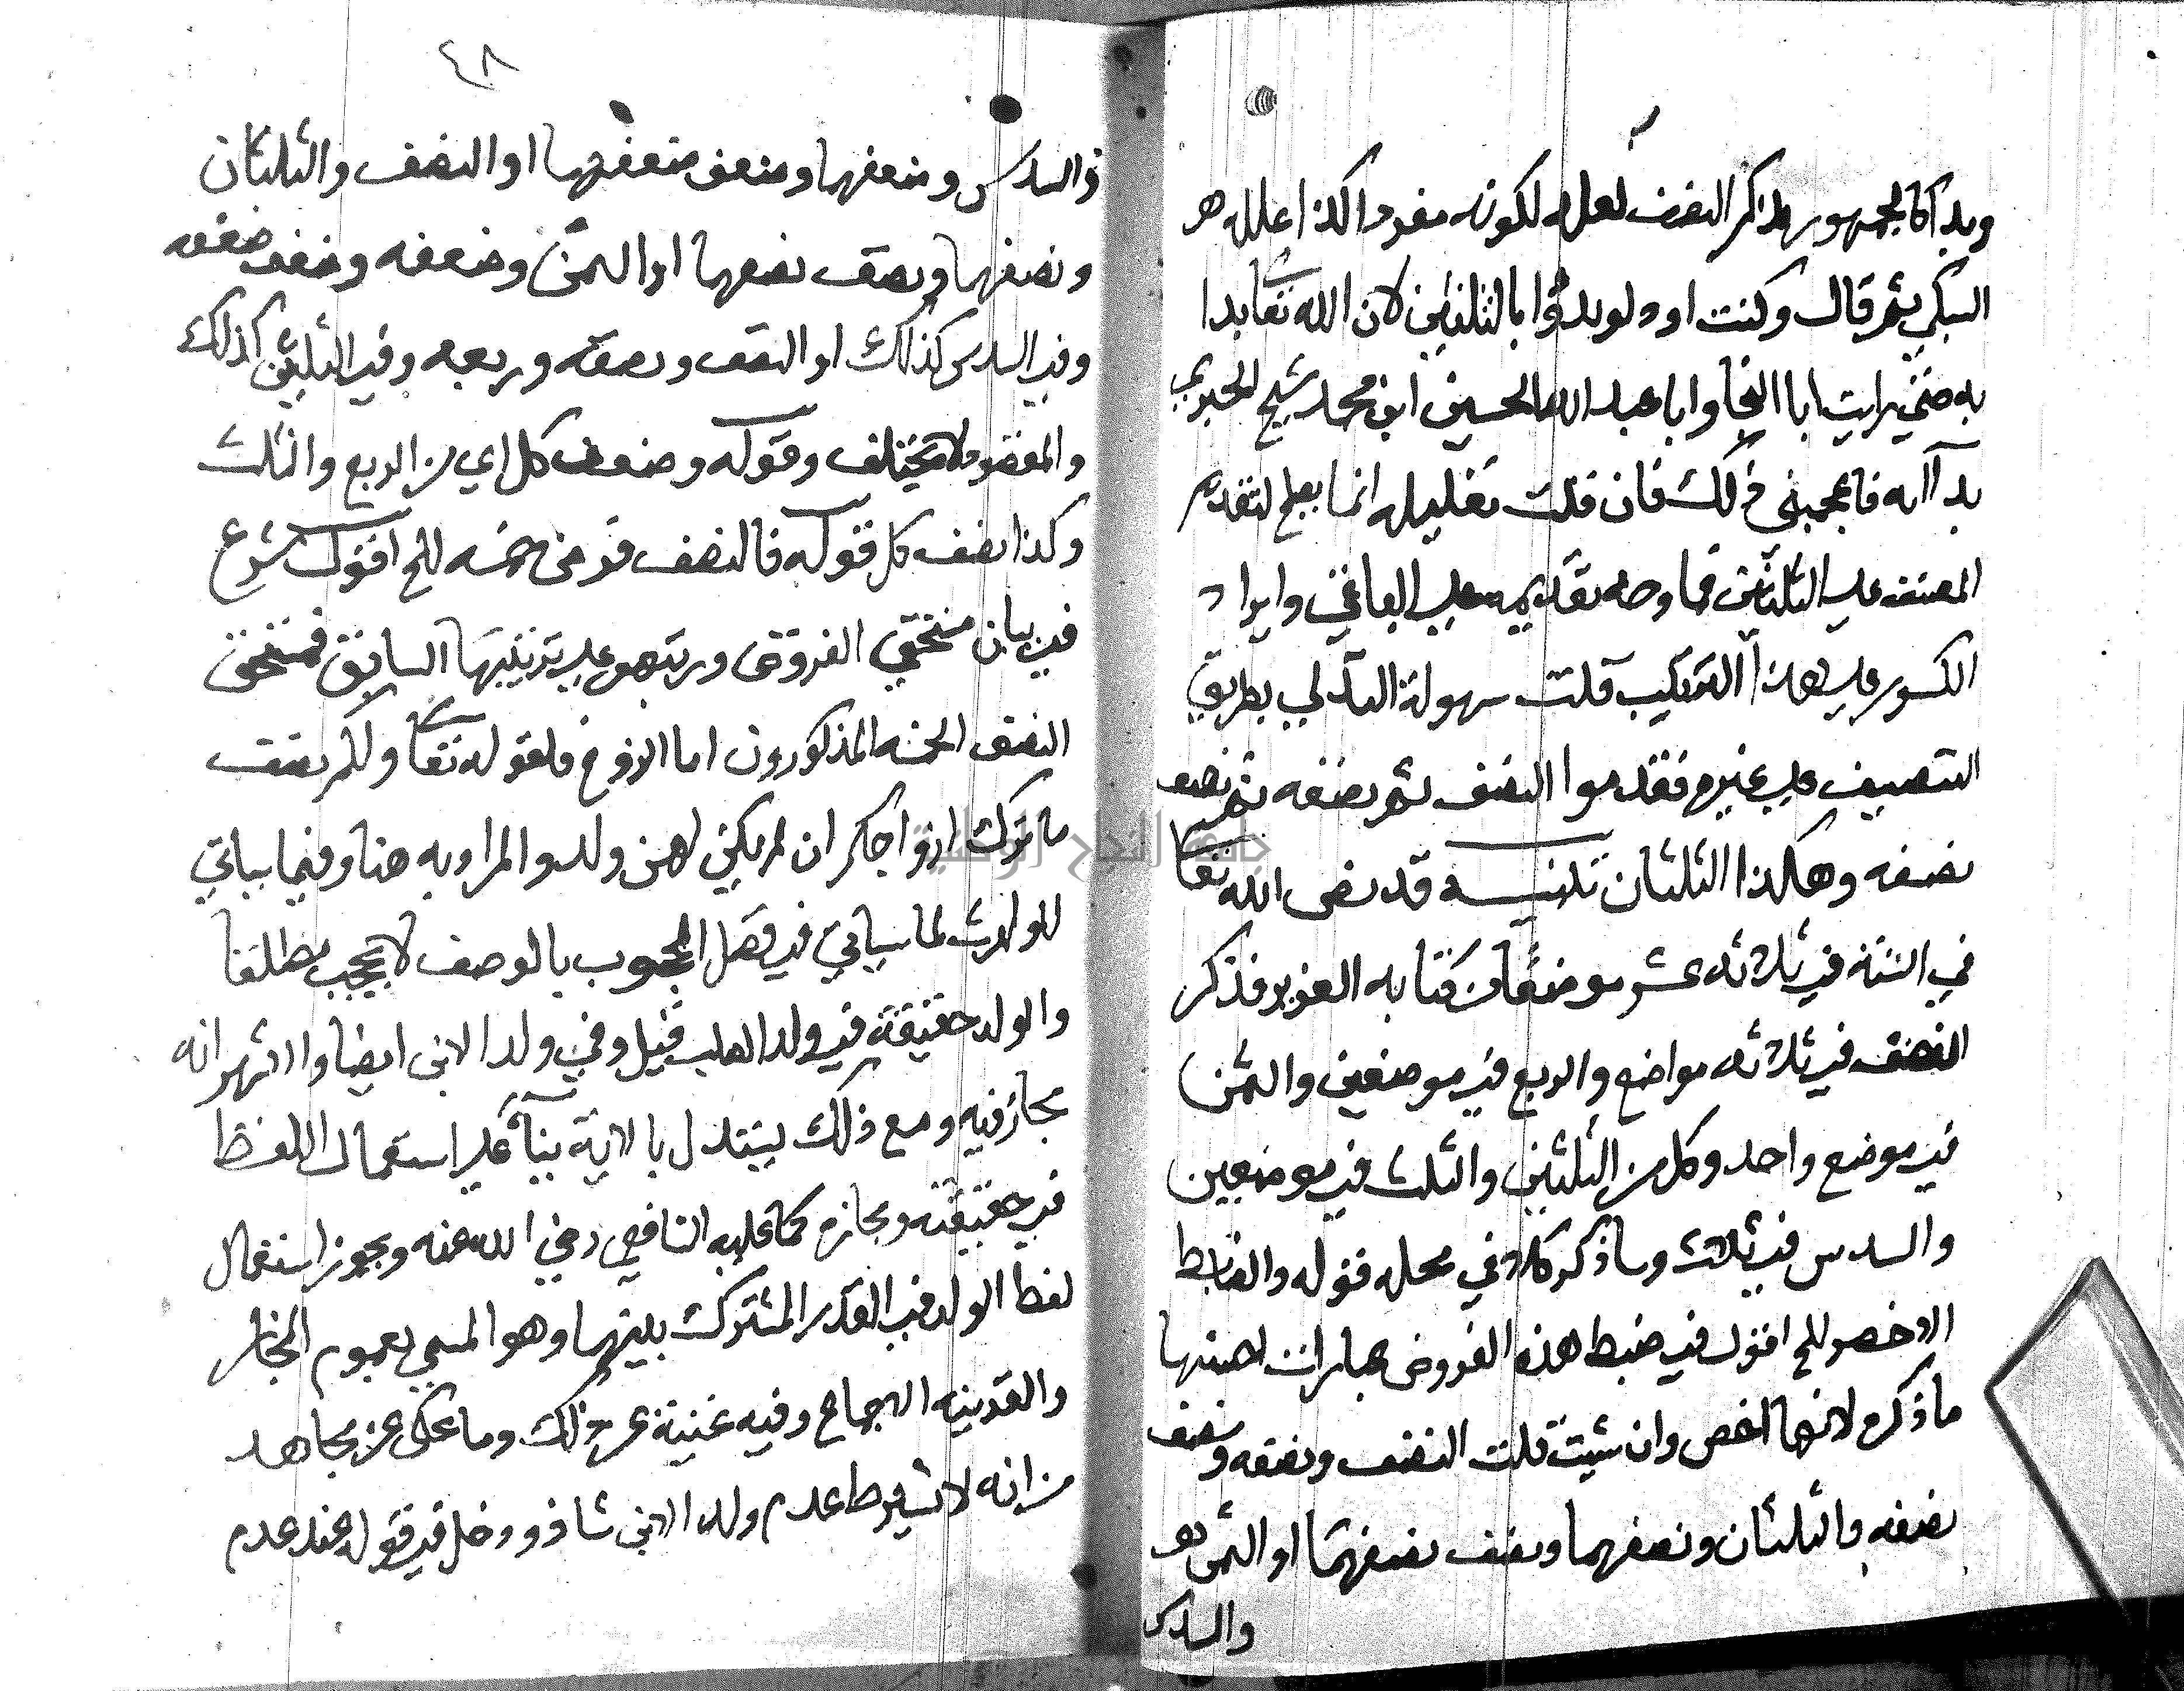 وبدا كالجمهور بذكر النصف لعله لكونه مفردا كذا علله
السبكي ثم قال وكنت اود لو بدؤا بالثلثين لان الله تعا بدا
به حتي رايت ابا النجا وابا عبد الله الحسين ابن محمد شيخ الخبري
بدآ به فاعجبني ذلك فان قلت تعليله انما يصلح لتقديم
المصنف علي الثلثين فما وجه تقديمه علي الباقي وايراد
الكسور علي هذا الترتيب قلت سهولة التدلي بطريق
التنصيف علي غيره فقدموا النصف ثم نصفه ثم نصف
نصفه وهكذا الثلثان تنبيه قد نص الله تعا
في الستة في ثلاثة عشر موضعا من كتابه العزيز فذكر
النصف في ثلاثة مواضع والربع في موضعين والثمن
في موضع واحد وكل من الثلثين والثلث في موضعين
والسدس في ثلاث وساذكر كلا في محله قوله والضابط
الاخصر الخ اقول في ضبط هذه الفروض عبارات احسنها
ما ذكره لانها اخصر وان شيت قلت النصف ونصفه ونصف
نصفه والثلثان ونصفهما ونصف نصفهما او الثمن
والسدس
والسدس وضعفهما وضعف ضعفهما او النصف والثلثان
ونصفهما ونصف نصفهما او الثمن وضعفه وضعف ضعفه
وفي السدس كذلك او النصف ونصفه وربعه وفي الثلثين كذلك
والمقصود لا يختلف وقوله وضعف كل اي من الربع والثلث
وكذا نصف كل قوله فالنصف فرض خمسه الخ اقول شرع
في بيان مستحقي الفروض ورتبهم علي ترتيبها السابق فمستحق
النصف الخمسه المذكورون اما الزوج فلقوله تعا ولكم نصف
ما ترك ازواجكم ان لم يكن لهن ولد والمراد به هنا وفيما ياتي
الوارث لما سياتي في فصل الحجب ان المحجوب بالوصف لا يحجب مطلقا
والولد حقيقة في ولد الصلب قيل وفي ولد الابن ايضا والاشهر انه
مجاز فيه ومع ذلك يستدل بالاية بناء علي استعمال اللفظ
في حقيقته ومجازه كما عليه الشافعي رضي الله عنه ويجوز استعمال
لفظ الولد في القدر المشترك بينهما وهو المسمي بعموم المجاز
والقرينه الاجماع وفيه غنية عن ذلك وما حكي عن مجاهد
من انه لا يشترط عدم ولد الابن شاذ ودخل في قوله عند عدم